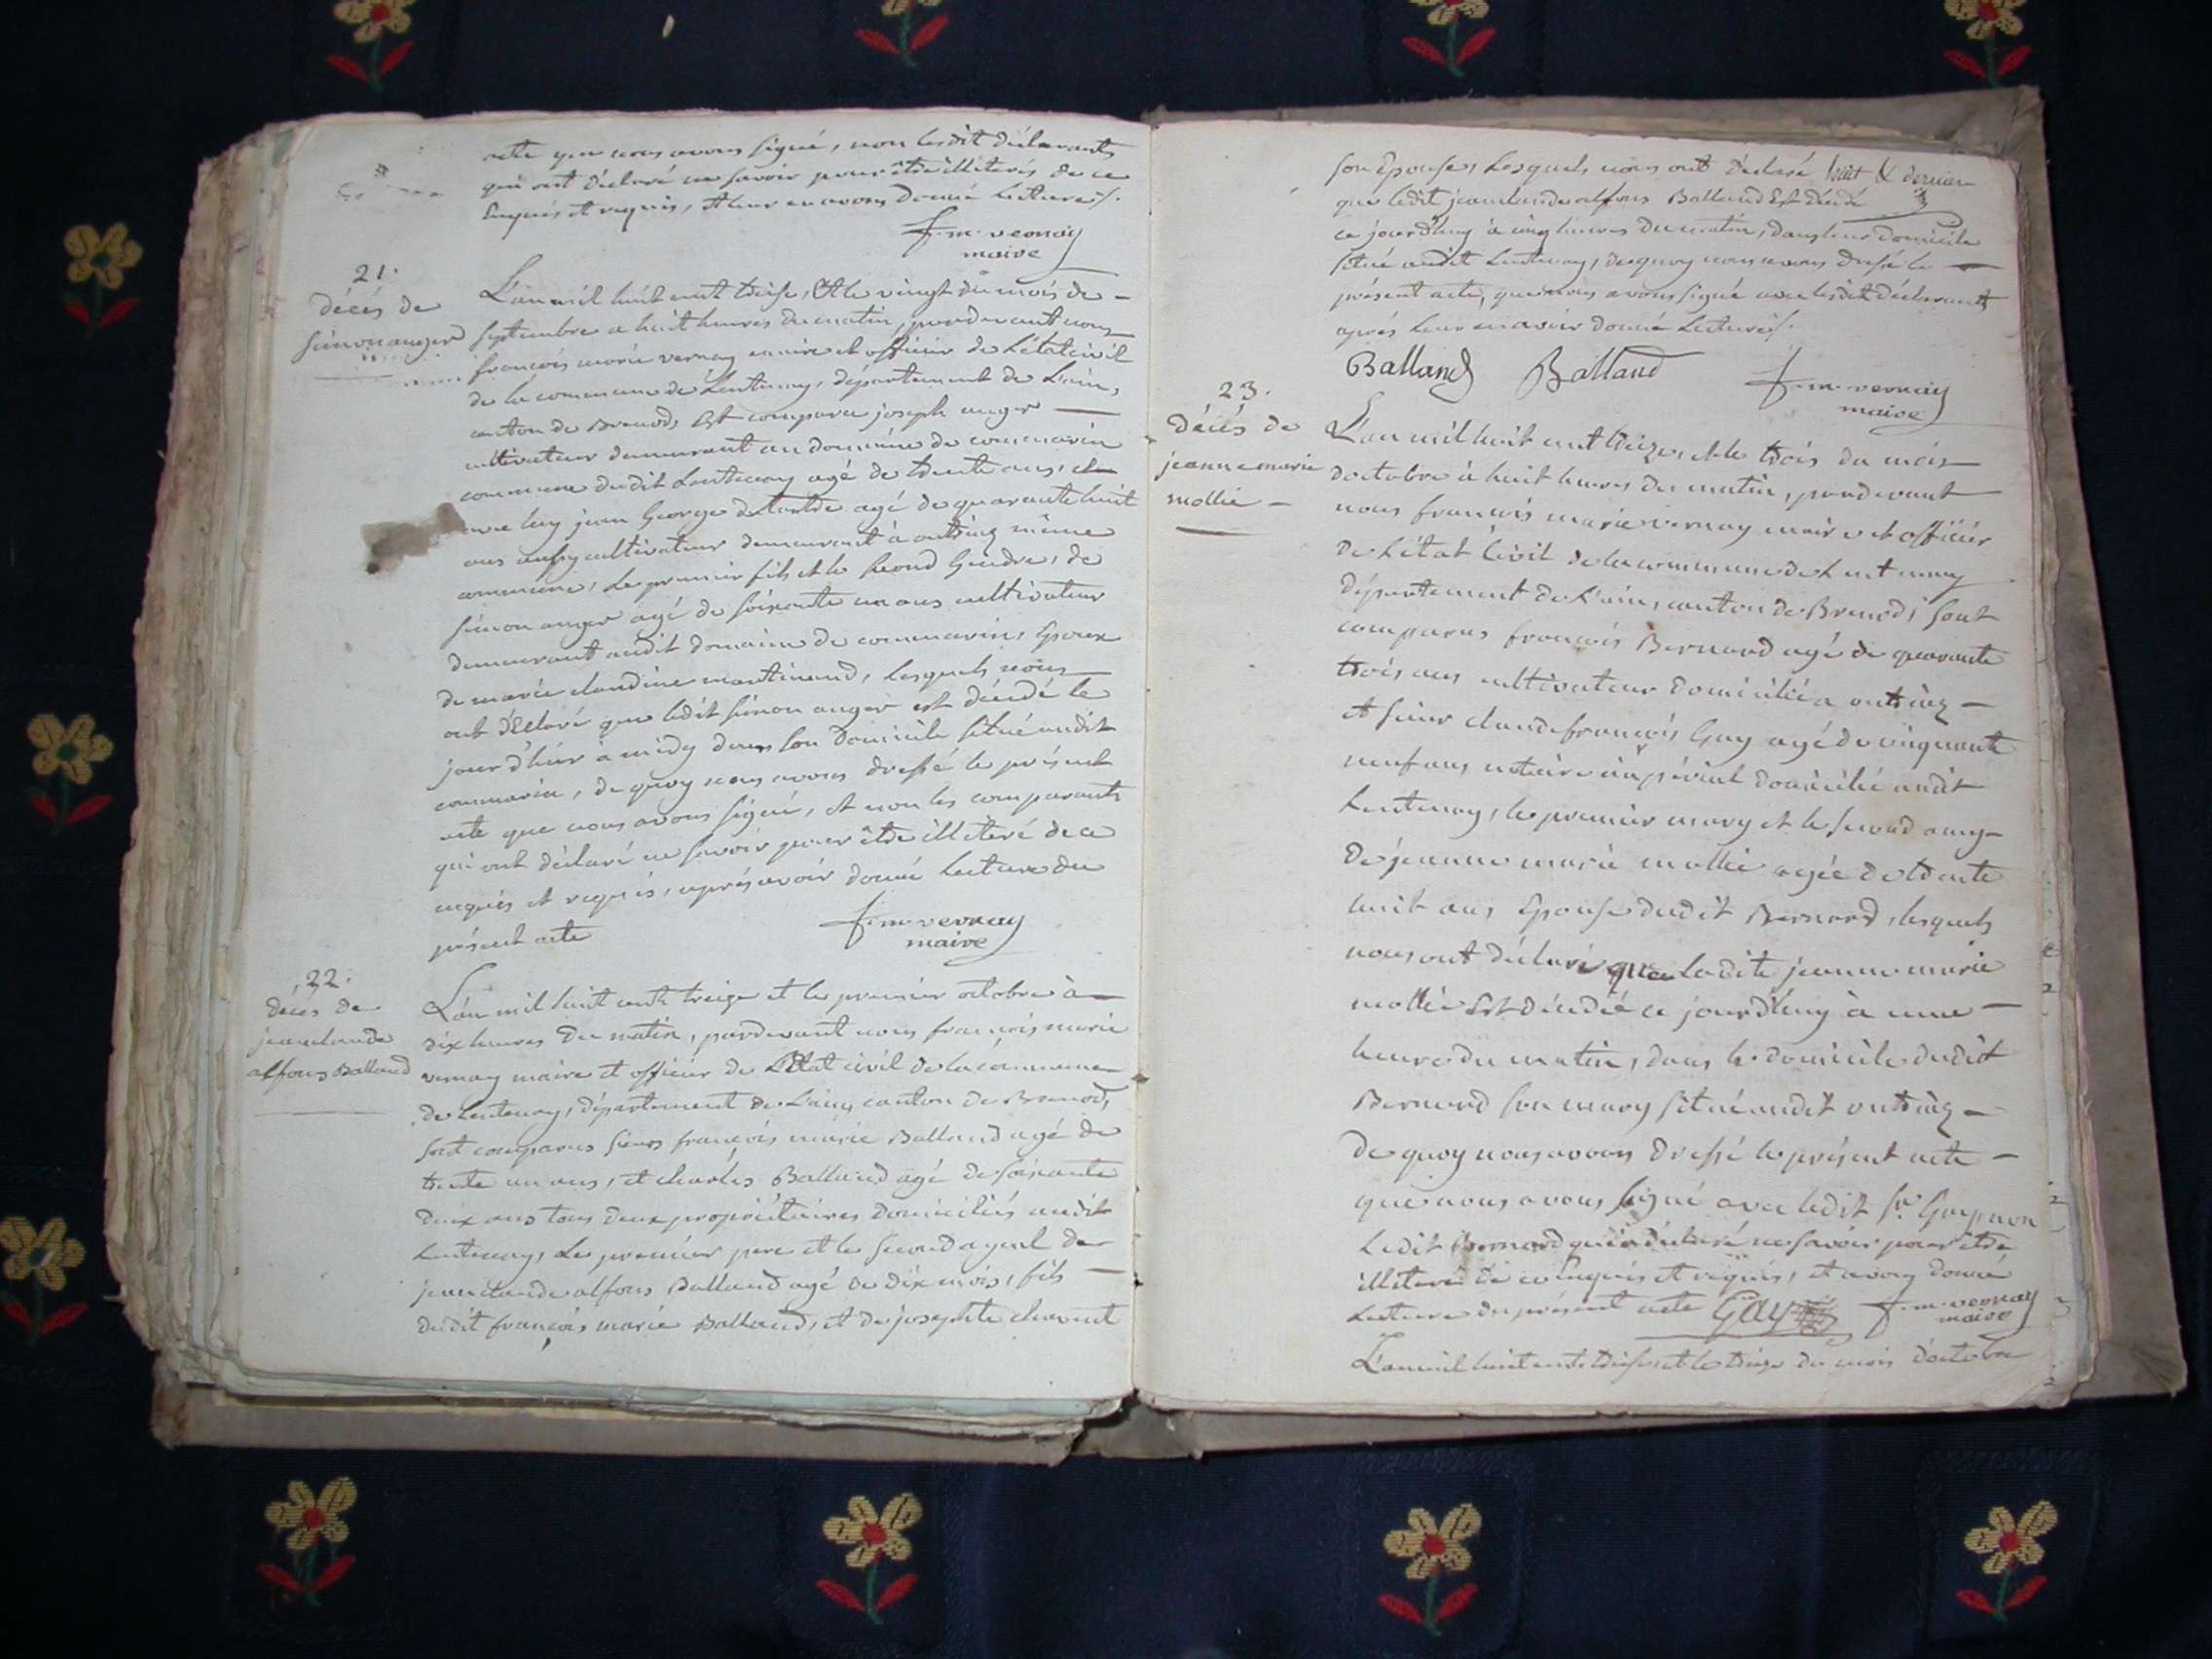 acte que nous avons signé, non lesdit déclarants
qui ont déclaré ne savoir pour être illiterés de ce
Enquis et requis, et leur en avons donné Lecture /.
f. m. vernay
maire
21.
décés de
simon auger
L'an mil huit cent treise, et le vingt du mois de
septembre a huit heures du matin, pardevant nous
francois marie vernay maire et officier de L'état civil
de la commune de Lentenay, département de L'ain,
canton de Brenod, Est comparu joseph auger
cultivateur demeurant au domaine de commarin
commune dudit Lentenay agé de trente ans, et
avec luy jean George agé de quarante huit
ans aussy cultivateur demeurant à outriaz même
commune, Le premier fils et le second Gendre, de
simon auger agé de soixante un ans cultivateur
demeurant audit domaine de commarin, Epoux
de marie claudine martinand, Lesquels nous
ont déclaré que ledit simon auger est décédé le
jour d'hier à midy dans son domicile situé audit
commarin, de quoy nous avons dressé le présent
acte que nous avons signé, et non les comparants
qui ont déclaré ne savoir pour être illiteré de ce
enquis et requis, après avoir donné Lecture du
présent acte
f. m. vernay
maire
22.
décés de
jean claude
alfons Balland
L'an mil huit cents treize et le premier octobre à
dix heures du matin, pardevant nous francois marie
vernay maire et officier de L'Etat civil de la commune
de Lentenay, département de L'ain, canton de Brenod,
sont comparus sieurs francois marie Balland agé de
trente un ans, et charles Balland agé de soixante
deux ans tous deux propriétaires domiciliés audit
Lentenay, Le premier pere et le second ayeul de
jean claude alfons Balland agé de dix mois, fils
dudit francois marie Balland, et de josephte
son Epouse, Lesquels nous ont déclaré huit & dernier
que ledit jean claude alfons Balland Est décédé
ce jourd'huy à cinq heures du matin, dans leur domicile
situé audit Lentenay, de quoy nous avons dressé le
présent acte, que nous avons signé avec lesdit déclarants
après leur en avoir donné Lecture /.
Balland Balland f. m. vernay
maire
23.
décés de
jeanne marie
mollie
L'an mil huit cent treize, et le trois du mois
d'octobre à huit heures du matin, pardevant
nous francois marie vernay maire et officier
de L'état Civil de la commune de Lentenay
département de L'ain, canton de Brenod, sont
comparus francois Bernard agé de quarante
trois ans cultivateur domicilié a outriaz
et sieur claude francois Gay agé de cinquante
neuf ans notaire impérial domicilié audit
Lentenay, le premier mary et le second amy
de jeanne marie mollie agée de trente
huit ans, Epouse dudit Bernard, lesquels
nous ont déclaré que ladite jeanne marie
mollie Est décédée ce jourd'huy à une
heure du matin, dans le domicile dudit
Bernard son mary situé audit outriaz
de quoy nous avons dressé le présent acte
que nous avons signé avec ledit sr. Gay, non
Ledit Bernard qui a déclaré ne savoir pour être
illiteré de ce Enquis et requis, et avons donné
Lecture du présent acte Gay f. m. vernay
maire
L'an mil huit cents treise et le treize du mois d'octobre